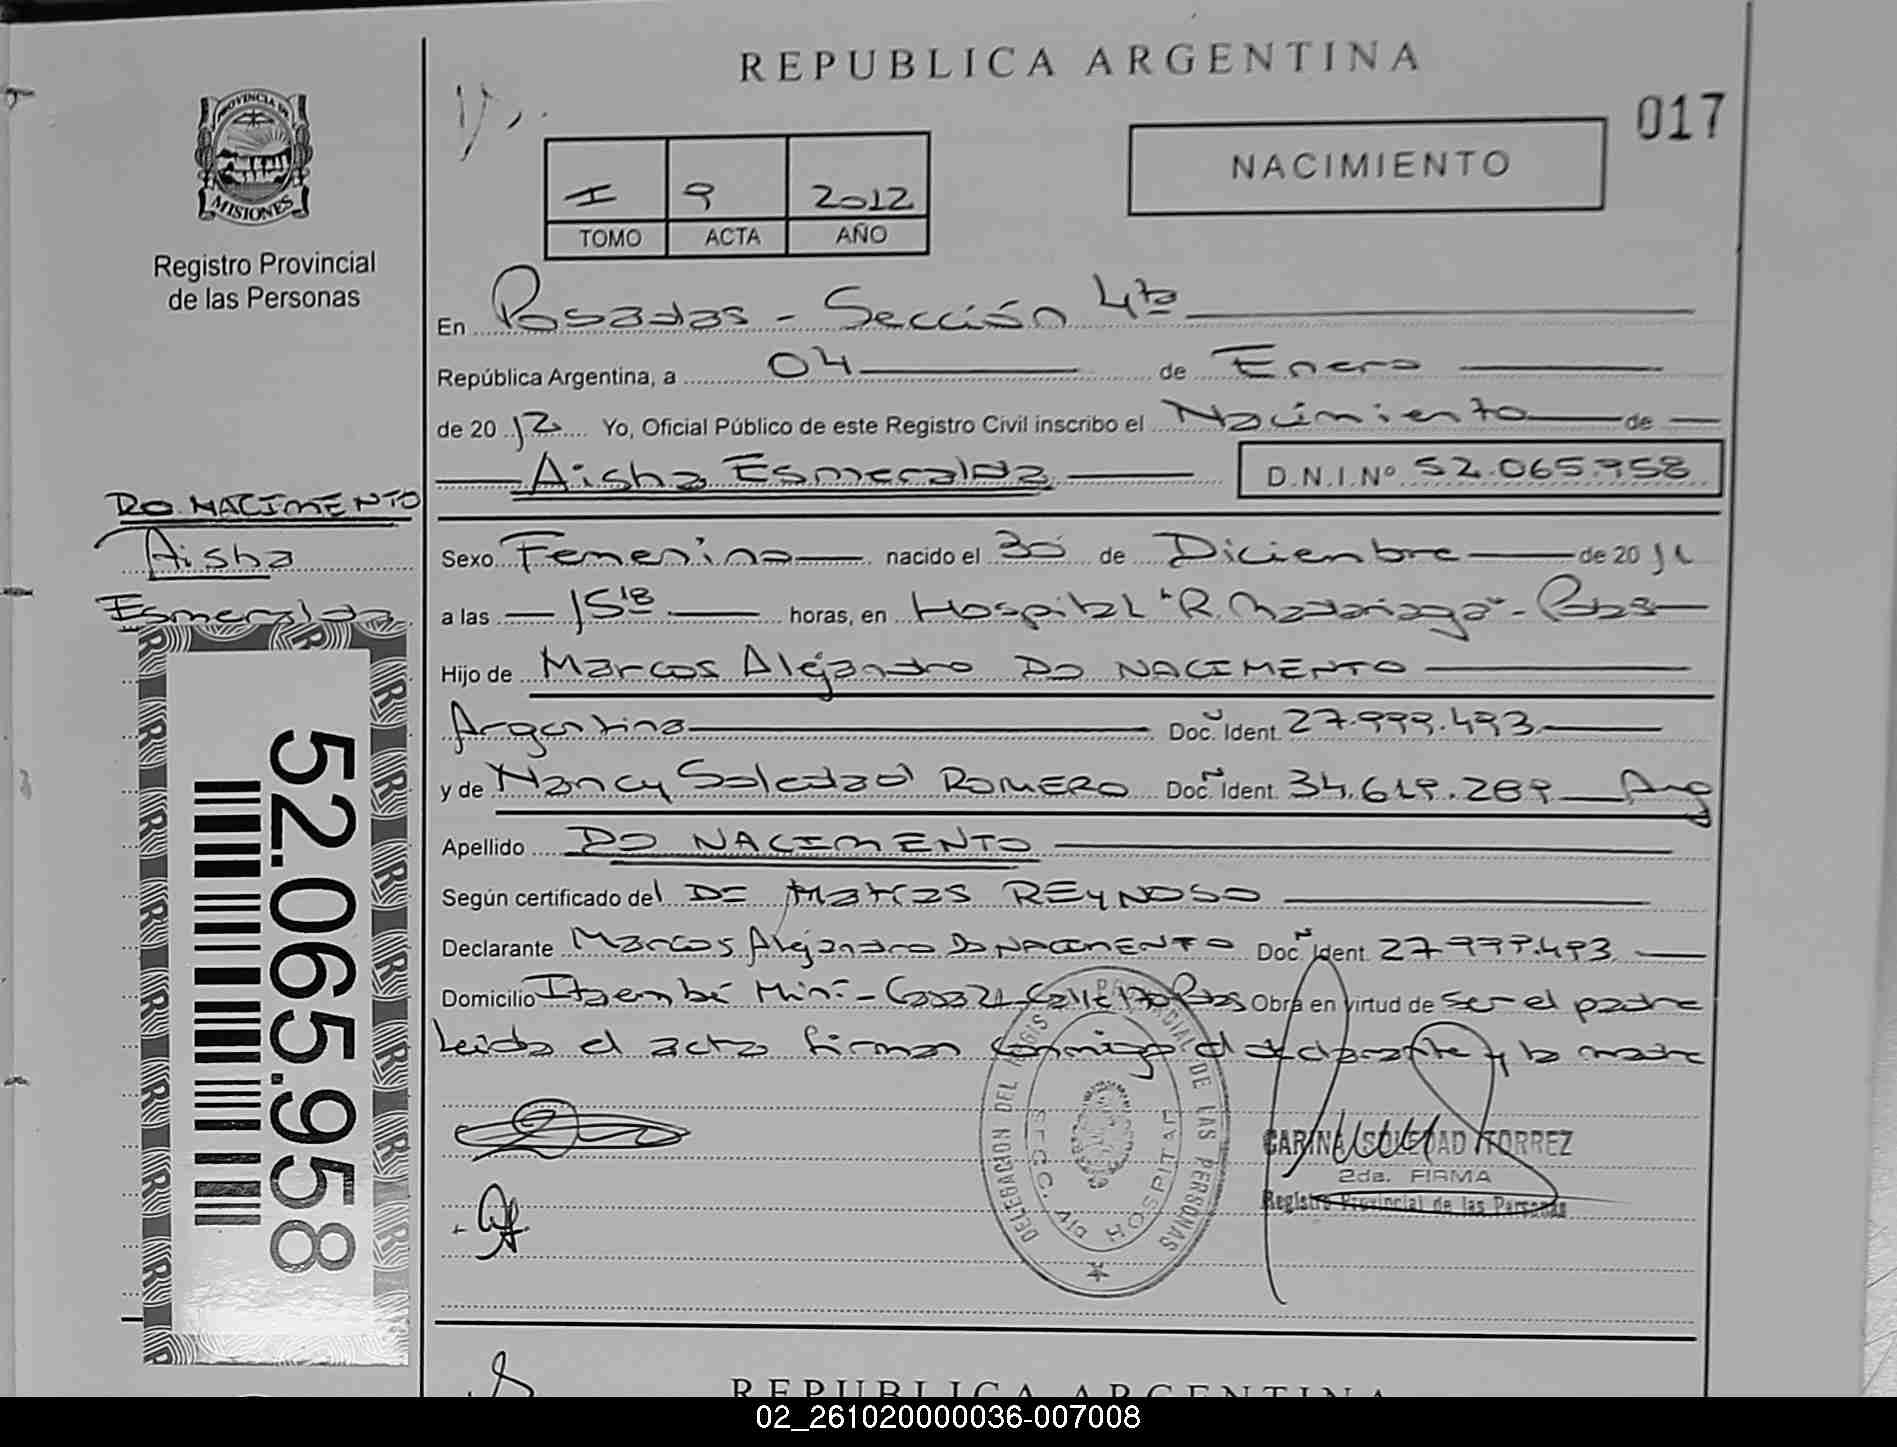 REPUBLICA ARGENTINA
017
PROVINCIA DE
MISIONES
Registro Provincial
de las Personas
I 9 2012
TOMO ACTA AÑO
NACIMIENTO
En Posadas - Sección 4ta
República Argentina, a 04 de Enero
de 2012 Yo, Oficial Público de este Registro Civil inscribo el Nacimiento de
Aisha Esmeralda D.N.I.Nº 52.065.958
DO NACIMENTO
Aisha
Esmeralda
52.065.958
Sexo Femenino nacido el 30 de Diciembre de 2011
a las 15 18 horas, en Hospital "R. Madariaga" - Pdas
Hijo de Marcos Alejandro DO NACIMENTO
Argentina Doc. Ident. 27.999.493
y de Nancy Soledad ROMERO Doc. Ident. 34.619.289 Arg
Apellido DO NACIMENTO
Según certificado del DE Matías REYNOSO
Declarante Marcos Alejandro Do NACIMENTO Doc. Ident. 27.999.493
Domicilio Itaembé Miní - Casa 21 Calle 170 Pdas Obra en virtud de ser el padre
Leída el acta firman conmigo el declarante y la madre
DELEGACION DEL REGISTRO PROVINCIAL DE LAS PERSONAS
SECC. DIV HOSPITAL
CARINA SOLEDAD TORREZ
2da. FIRMA
Registro Provincial de las Personas
REPUBLICA ARGENTINA
02_261020000036-007008